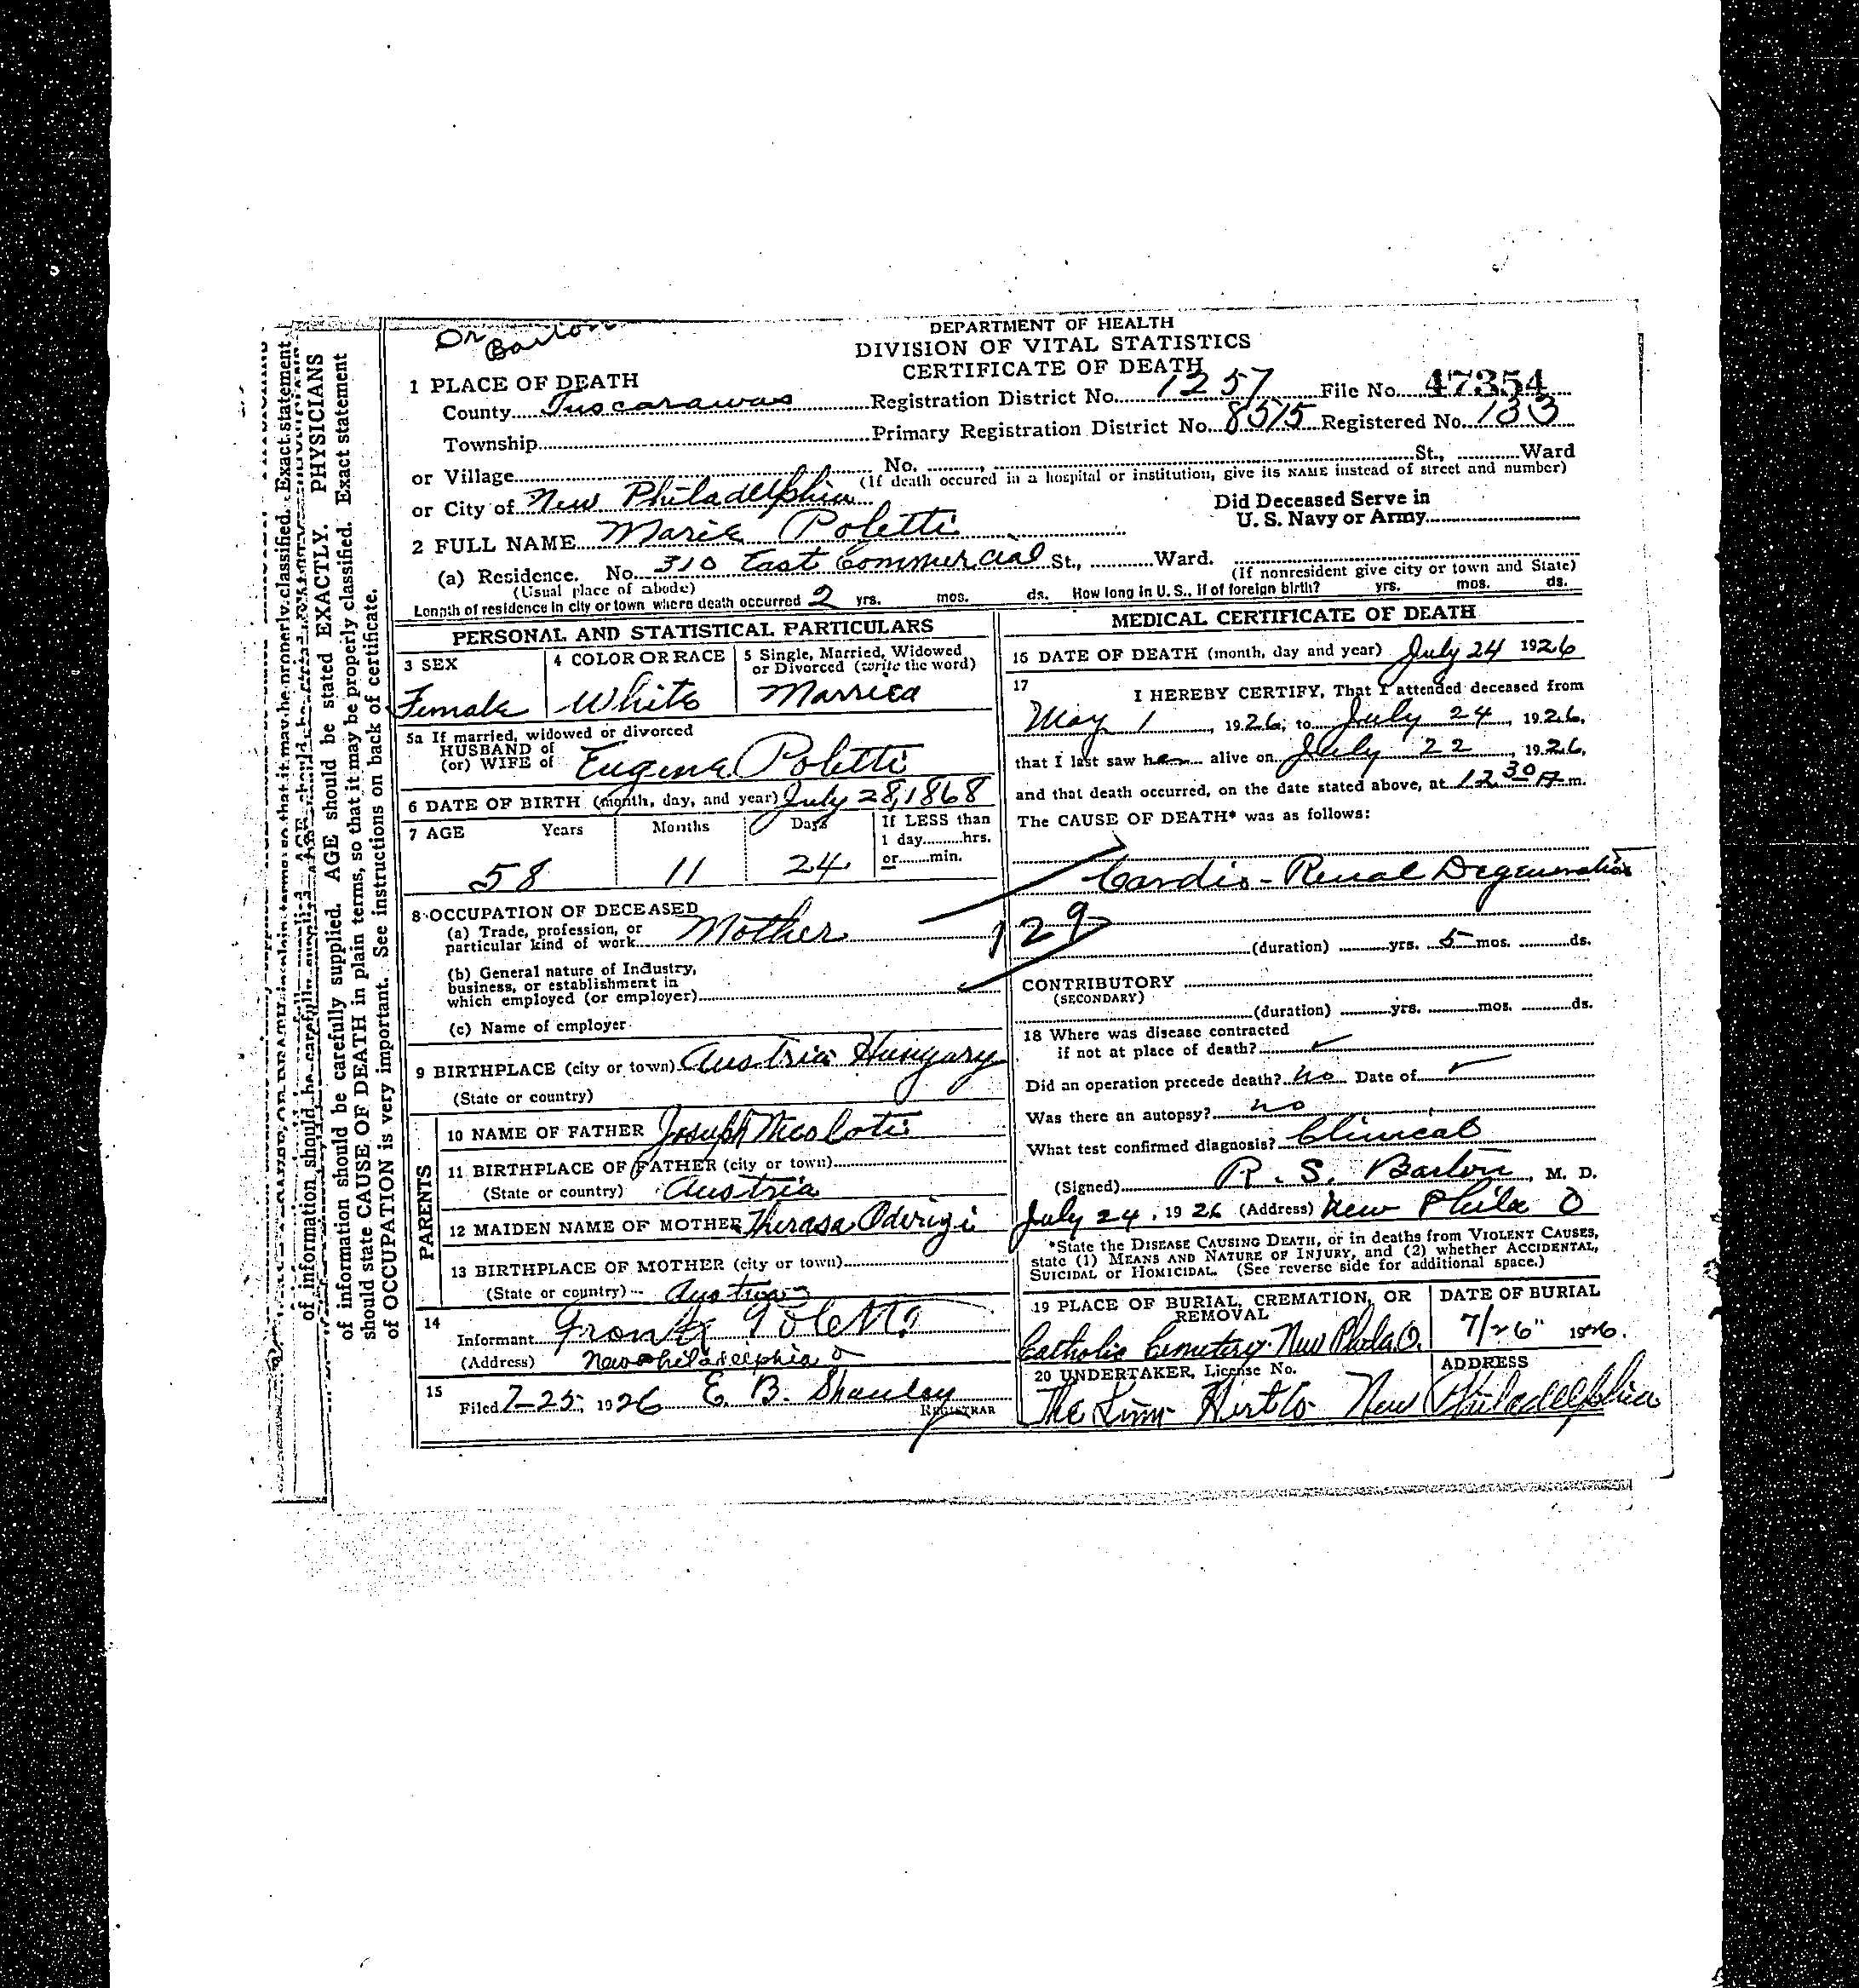 Dr Barton
DEPARTMENT OF HEALTH
DIVISION OF VITAL STATISTICS
CERTIFICATE OF DEATH
1 PLACE OF DEATH
County Tuscarawas Registration District No. 1257 File No. 47354
Township Primary Registration District No. 8575 Registered No. 133
or Village No. St., Ward
(If death occured in a hospital or institution, give its NAME instead of street and number)
or City of New Philadelphia
Did Deceased Serve in
U. S. Navy or Army
2 FULL NAME Marie Poletti
(a) Residence. No. 310 East Commercial St., Ward.
(Usual place of abode) (If nonresident give city or town and State)
Length of residence in city or town where death occurred 2 yrs. mos. ds. How long in U. S., if of foreign birth? yrs. mos. ds.
PERSONAL AND STATISTICAL PARTICULARS
3 SEX
Female
4 COLOR OR RACE
White
5 Single, Married, Widowed
or Divorced (write the word)
Married
5a If married, widowed or divorced
HUSBAND of
(or) WIFE of Eugene Poletti
6 DATE OF BIRTH (month, day, and year) July 28, 1868
7 AGE Years Months Days If LESS than
1 day hrs.
or min.
58 11 24
8 OCCUPATION OF DECEASED
(a) Trade, profession, or
particular kind of work Mother
(b) General nature of Industry,
business, or establishment in
which employed (or employer)
(c) Name of employer
9 BIRTHPLACE (city or town) Austria Hungary
(State or country)
PARENTS
10 NAME OF FATHER Joseph
11 BIRTHPLACE OF FATHER (city or town)
(State or country) Austria
12 MAIDEN NAME OF MOTHER Therasa
13 BIRTHPLACE OF MOTHER (city or town)
(State or country) Austria
14
Informant Frank Poletti
(Address) New Philadelphia O
15
Filed 7-25, 1926 E. B. Shanley
REGISTRAR
MEDICAL CERTIFICATE OF DEATH
16 DATE OF DEATH (month, day and year) July 24 1926
17
I HEREBY CERTIFY, That I attended deceased from
May 1, 1926, to July 24, 1926,
that I last saw her alive on July 22, 1926,
and that death occurred, on the date stated above, at 12 30 A m.
The CAUSE OF DEATH* was as follows:
Cardio-Renal Degeneration
129
(duration) yrs. 5 mos. ds.
CONTRIBUTORY
(SECONDARY)
(duration) yrs. mos. ds.
18 Where was disease contracted
if not at place of death?
Did an operation precede death? No Date of
Was there an autopsy? no
What test confirmed diagnosis? Clinical
(Signed) R. S. Barton, M. D.
July 24, 1926 (Address) New Phila O
*State the DISEASE CAUSING DEATH, or in deaths from VIOLENT CAUSES,
state (1) MEANS AND NATURE OF INJURY, and (2) whether ACCIDENTAL,
SUICIDAL or HOMICIDAL. (See reverse side for additional space.)
19 PLACE OF BURIAL, CREMATION, OR
REMOVAL
Catholic Cemetery New Phila O.
DATE OF BURIAL
7/26" 1926.
20 UNDERTAKER, License No.
The Linn Hert Co
ADDRESS
New Philadelphia
of information should be carefully supplied. AGE should be stated EXACTLY. PHYSICIANS
should state CAUSE OF DEATH in plain terms, so that it may be properly classified. Exact statement
of OCCUPATION is very important. See instructions on back of certificate.